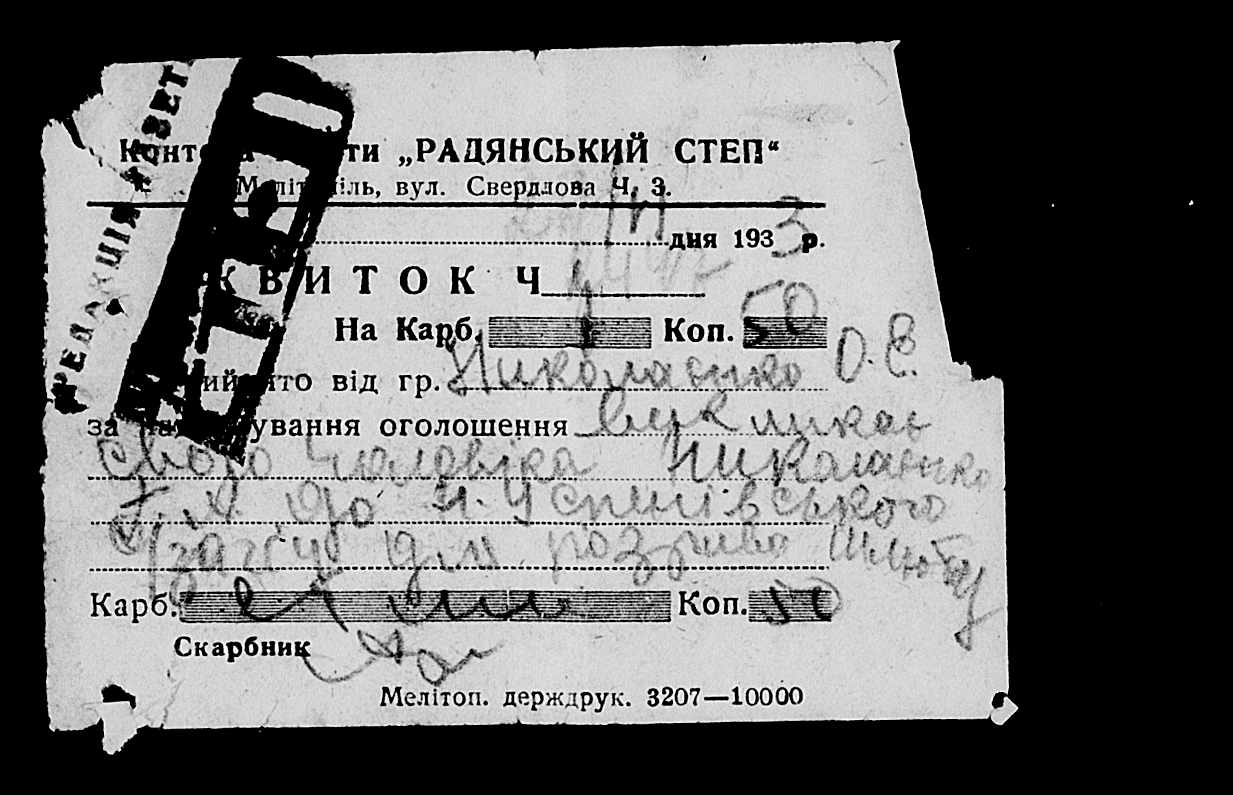 РЕДАКЦІЯ ГАЗЕТ
СТЕП
Контора газети „РАДЯНСЬКИЙ СТЕП“
Мелітопіль, вул. Свердлова Ч. 3.
дня 1933 р.
КВИТОК Ч
На Карб. 1 Коп. 50
Прийнято від гр. Николаенко О. Е.
за надрукування оголошення викликає
свого чоловіка Николаенко
до Н. Успенівського
загсу для розриву шлюбу
Карб. Коп. 50
Скарбник
Мелітоп. держдрук. 3207—10000